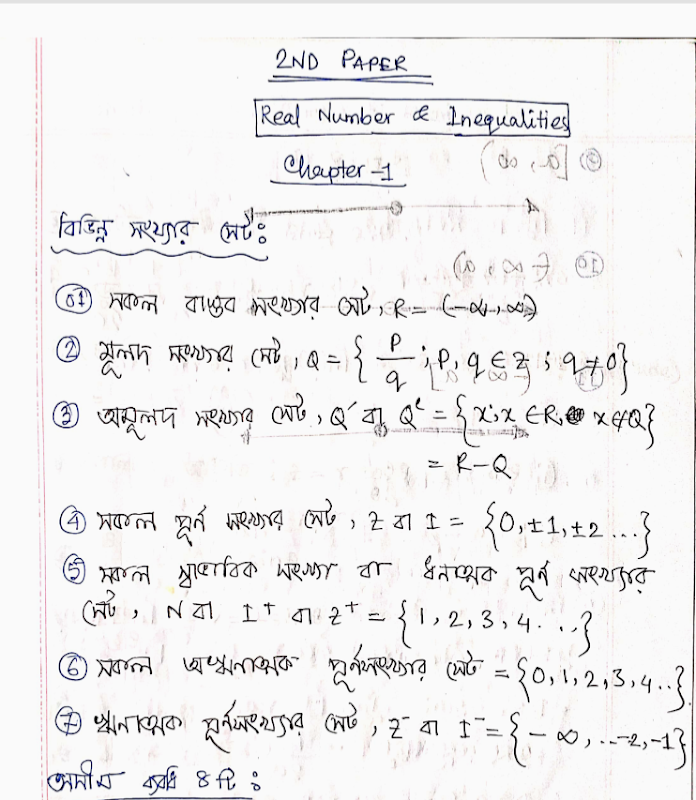 2ND PAPER
Real Number & Inequalities
Chapter-1
বিভিন্ন সংখ্যার সেট:
01 সকল বাস্তব সংখ্যার সেট, R = (-∞, ∞)
2 মূলদ সংখ্যার সেট, Q = { p/q ; p, q ∈ z ; q ≠ 0}
3 অমূলদ সংখ্যার সেট, Q′ বা Qᶜ = {x ; x ∈ R, x ∉ Q}
= R-Q
4 সকল পূর্ন সংখ্যার সেট, Z বা I = {0, ±1, ±2 ...}
5 সকল স্বাভাবিক সংখ্যা বা ধনাত্মক পূর্ন সংখ্যার
সেট, N বা I⁺ বা Z⁺ = {1, 2, 3, 4....}
6 সকল অঋনাত্মক পূর্নসংখ্যার সেট = {0, 1, 2, 3, 4..}
7 ঋনাত্মক পূর্নসংখ্যার সেট, Z⁻ বা I⁻ = {-∞, ..-2, -1}
৪ টি :